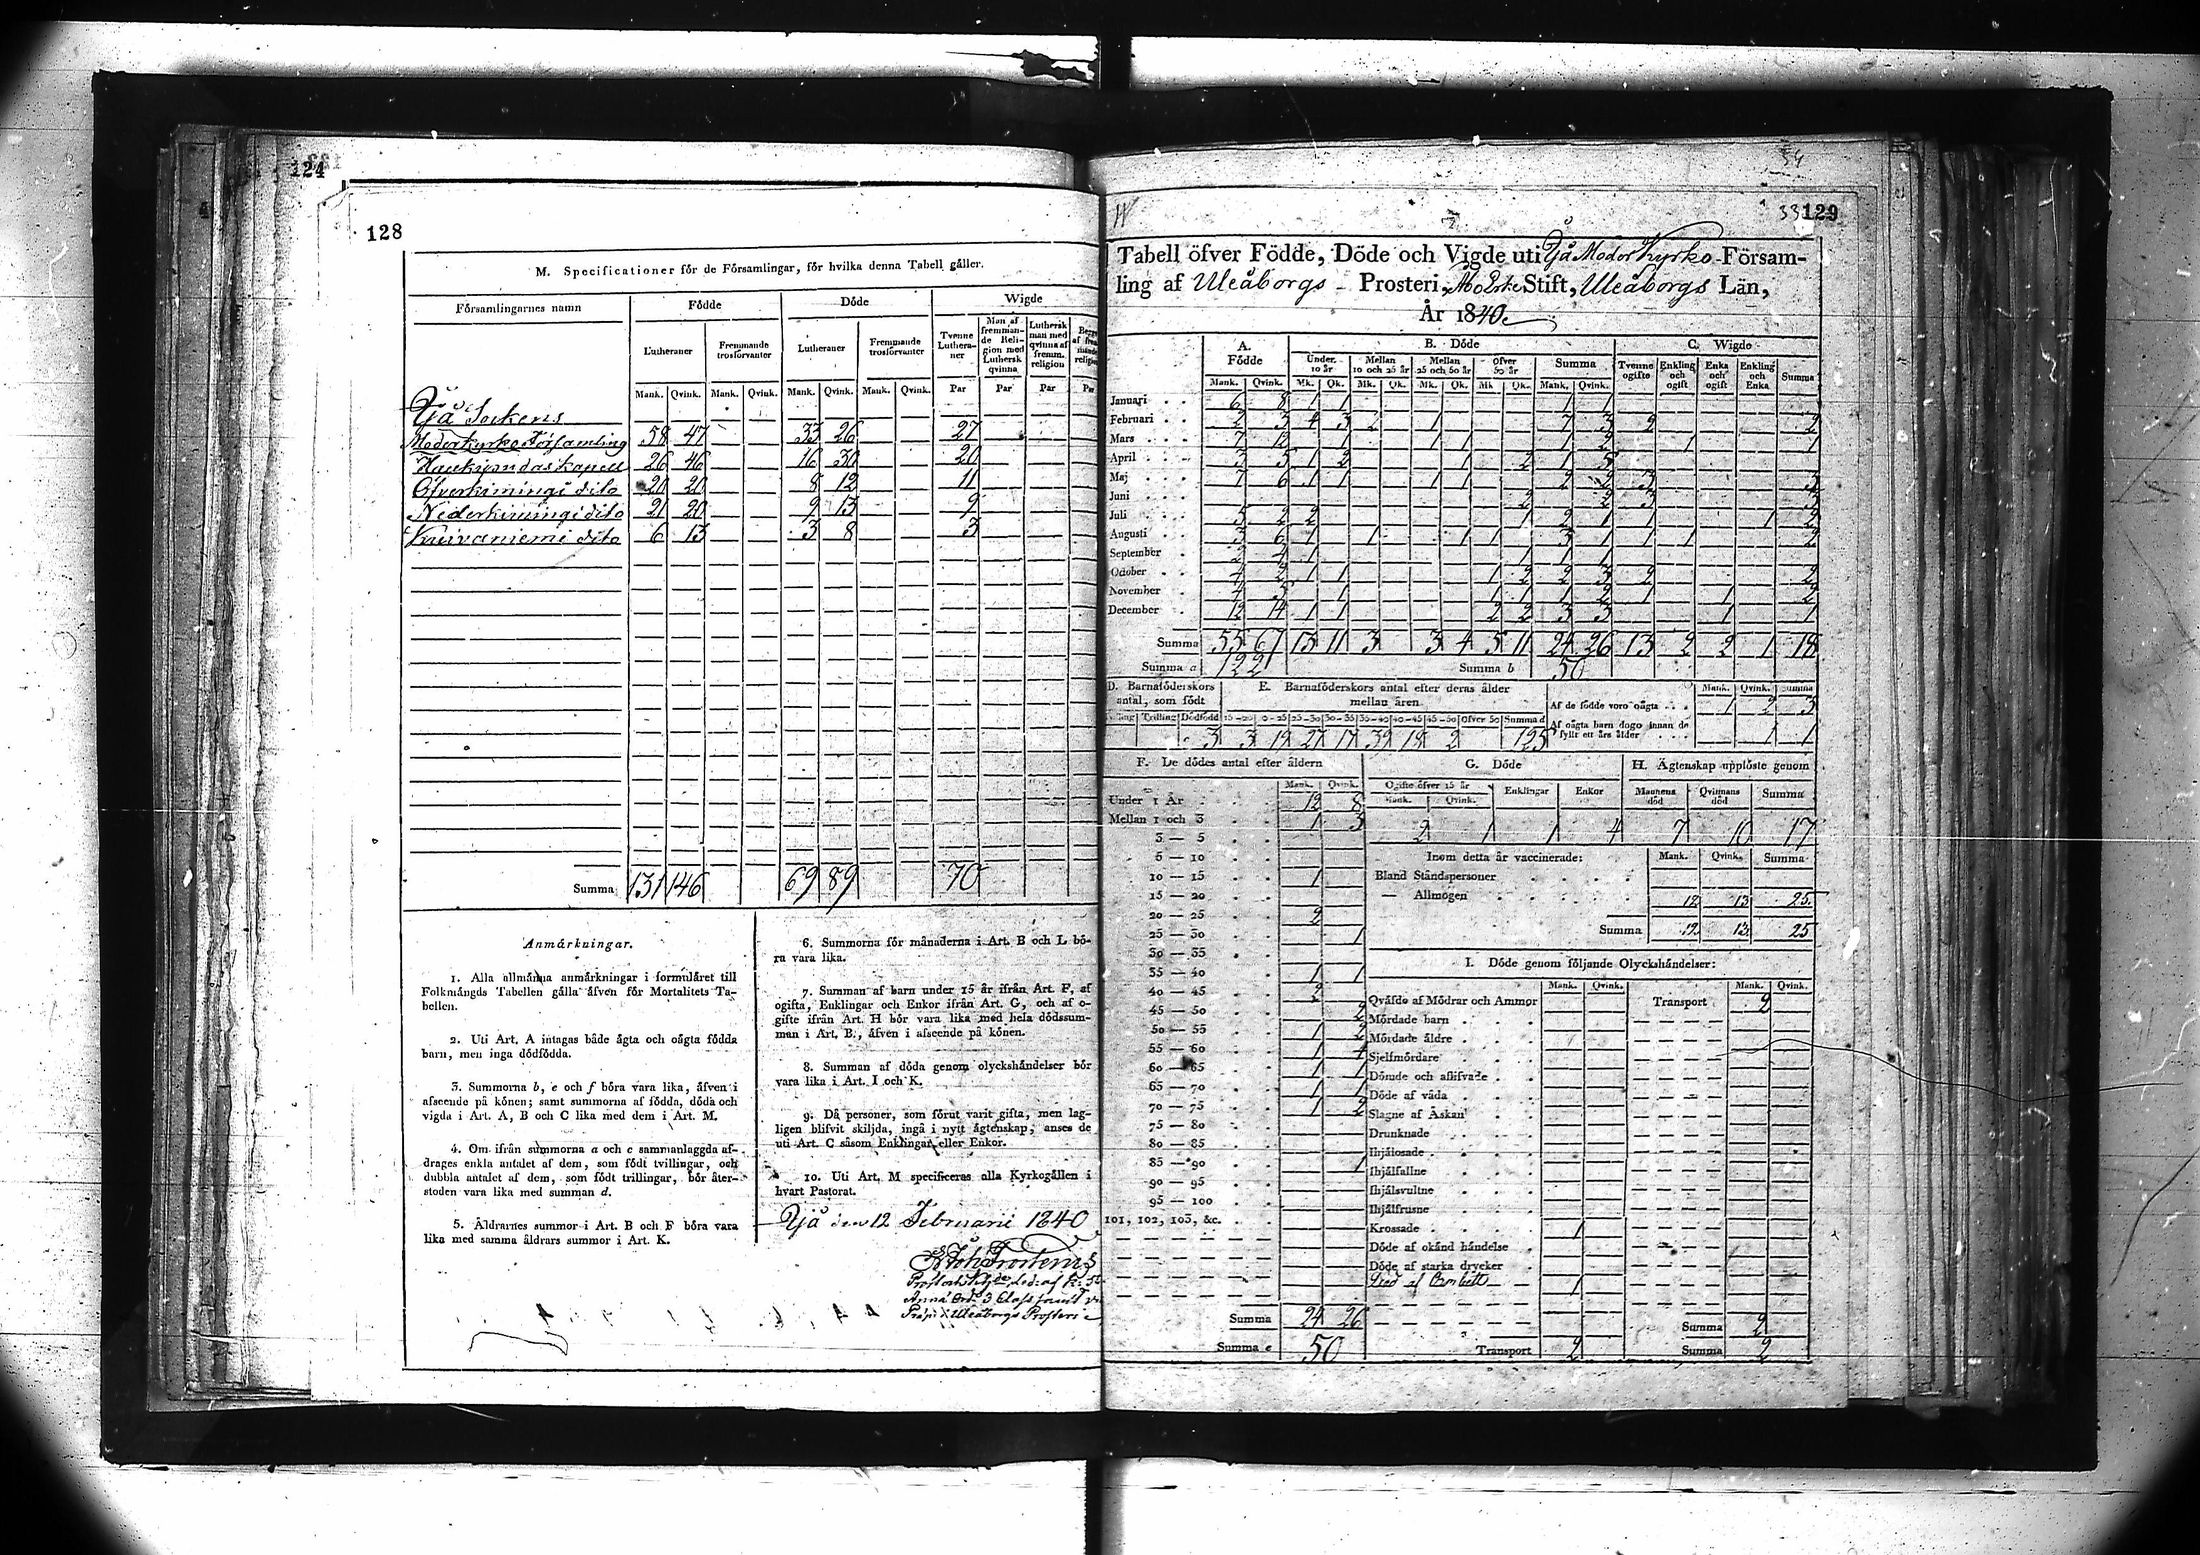 124
128
M. Specificationer för de Församlingar, för hvilka denna Tabell gäller.
Församlingarnes namn | Födde | Döde | Wigde
Lutheraner | Fremmande trosförvanter | Lutheraner | Fremmande trosförvanter | Tvenne Lutheraner | Man af fremmande Religion med Luthersk qvinna | Luthersk man med qvinna af fremm. religion
Mank. Qvink. Mank. Qvink. Mank. Qvink. Mank. Qvink. Par Par Par
Yjå Sockens
Moderkyrko Församling 58 47 33 26 27
Haukipudas Kapell 26 46 16 30 20
Öfverkimingi dito 20 20 8 12 11
Nederkimingi dito 21 20 9 13 9
Kuivaniemi dito 6 13 3 8 3
Summa 131 146 69 89 70
Anmärkningar.
1. Alla allmänna anmärkningar i formuläret till
Folkmängds Tabellen gälla äfven för Mortalitets Ta-
bellen.
2. Uti Art. A intagas både ägta och oägta födda
barn, men inga dödfödda.
3. Summorna b, e och f böra vara lika, äfven i
afseende på könen; samt summorna af födda, döda och
vigda i Art. A, B och C lika med dem i Art. M.
4. Om ifrån summorna a och c sammanlaggda af-
drages enkla antalet af dem, som födt tvillingar, och
dubbla antalet af dem, som födt trillingar, bör åter-
stoden vara lika med summan d.
5. Åldrarnes summor i Art. B och F böra vara
lika med samma åldrars summor i Art. K.
6. Summorna för månaderna i Art. B och L bö-
ra vara lika.
7. Summan af barn under 15 år ifrån Art. F, af
ogifta, Enklingar och Enkor ifrån Art. G, och af o-
gifte ifrån Art. H bör vara lika med hela dödssum-
man i Art. B, äfven i afseende på könen.
8. Summan af döda genom olyckshändelser bör
vara lika i Art. I och K.
9. Då personer, som förut varit gifta, men lag-
ligen blifvit skiljda, ingå i nytt ägtenskap, anses de
uti Art. C såsom Enklingar eller Enkor.
10. Uti Art. M specificeras alla Kyrkogällen i
hvart Pastorat.
Yjå den 12 Februarii 1840
129
Tabell öfver Födde, Döde och Vigde uti Yjå Moder Kyrko Försam-
ling af Uleåborgs Prosteri, Åbo Erke Stift, Uleåborgs Län,
År 1840.
A. Födde | B. Döde | C. Wigde
Under 10 år | Mellan 10 och 25 år | Mellan 25 och 50 år | Öfver 50 år | Summa | Tvenne ogifte | Enkling och ogift | Enka och ogift | Enkling och Enka | Summa
Mank. Qvink. Mk. Qk. Mk. Qk. Mk. Qk. Mk. Qk. Mank. Qvink.
Januari 6 8 1 1 1 1
Februari 2 3 4 3 2 1 7 3 2 2
Mars 7 12 1 1 1 1 2 1 1
April 3 5 1 2 1 2 1 5
Maj 7 6 1 1 1 1 2 2 3 3
Juni 2 2 3 3
Juli 5 2 2 1 2 1 1 1 2
Augusti 3 6 1 1 1 1 3 1 1 1 2
September 2 4 1 1 1 1
October 4 2 1 1 1 2 2 3 2 2
November 4 5 1 1 1 1 2 1 1 2
December 12 14 1 1 2 2 3 3 1 1
Summa 55 67 13 11 3 3 4 5 11 24 26 13 2 2 1 18
Summa a 122 Summa b 50
D. Barnaföderskors antal, som födt | E. Barnaföderskors antal efter deras ålder mellan åren
Trilling Dödfödd 15-20 20-25 25-30 30-35 35-40 40-45 45-50 Öfver 50 Summa d
3 3 12 27 17 39 19 2 125
Mank. Qvink. Summa
Af de födde voro oägta 1 2 3
Af oägta barn dogo innan de fyllt ett års ålder 1 1
F. De dödes antal efter åldern
Mank. Qvink.
Under 1 År 12 8
Mellan 1 och 3 1 3
3 — 5
5 — 10
10 — 15 1
15 — 20
20 — 25 2
25 — 30 1
30 — 35
35 — 40 1 1
40 — 45 2
45 — 50 2
50 — 55 1 2
55 — 60 1 4
60 — 65 1 1
65 — 70 1 1
70 — 75 1 2
75 — 80
80 — 85
85 — 90 1
90 — 95
95 — 100
101, 102, 103, &c.
Summa 24 26
Summa e 50
G. Döde
Ogifte öfver 15 år | Enklingar | Enkor
Mank. Qvink.
2 1 1 4
H. Ägtenskap upplöste genom
Mannens död | Qvinnans död | Summa
7 10 17
Inom detta år vaccinerade: Mank. Qvink. Summa
Bland Ståndspersoner
— Allmogen 12 13 25
Summa 12 13 25
I. Döde genom följande Olyckshändelser:
Mank. Qvink. Mank. Qvink.
Qväfde af Mödrar och Ammor Transport 2
Mördade barn
Mördade äldre
Sjelfmördare
Dömde och aflifvade
Döde af våda
Slagne af Åskan
Drunknade
Ihjälosade
Ihjälfallne
Ihjälsvultne
Ihjälfrusne
Krossade 1
Döde af okänd händelse
Döde af starka drycker
1
Summa 2
Transport 2 Summa 2